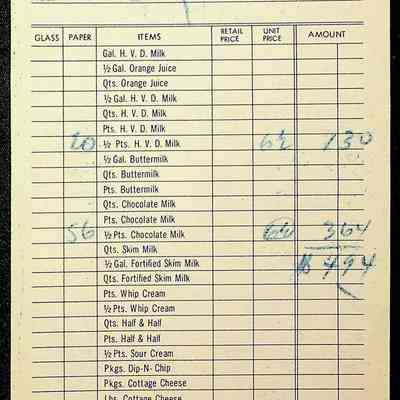 GLASS PAPER ITEMS RETAIL PRICE UNIT PRICE AMOUNT
Gal. H. V. D. Milk
½ Gal. Orange Juice
Qts. Orange Juice
½ Gal. H. V. D. Milk
Qts. H. V. D. Milk
Pts. H. V. D. Milk
20 ½ Pts. H. V. D. Milk 6½ 1 30
½ Gal. Buttermilk
Qts. Buttermilk
Pts. Buttermilk
Qts. Chocolate Milk
Pts. Chocolate Milk
56 ½ Pts. Chocolate Milk 6½ 3 64
Qts. Skim Milk
½ Gal. Fortified Skim Milk $ 4 94
Qts. Fortified Skim Milk
Pts. Whip Cream
½ Pts. Whip Cream
Qts. Half & Half
Pts. Half & Half
½ Pts. Sour Cream
Pkgs. Dip-N- Chip
Pkgs. Cottage Cheese
Lbs. Cottage Cheese